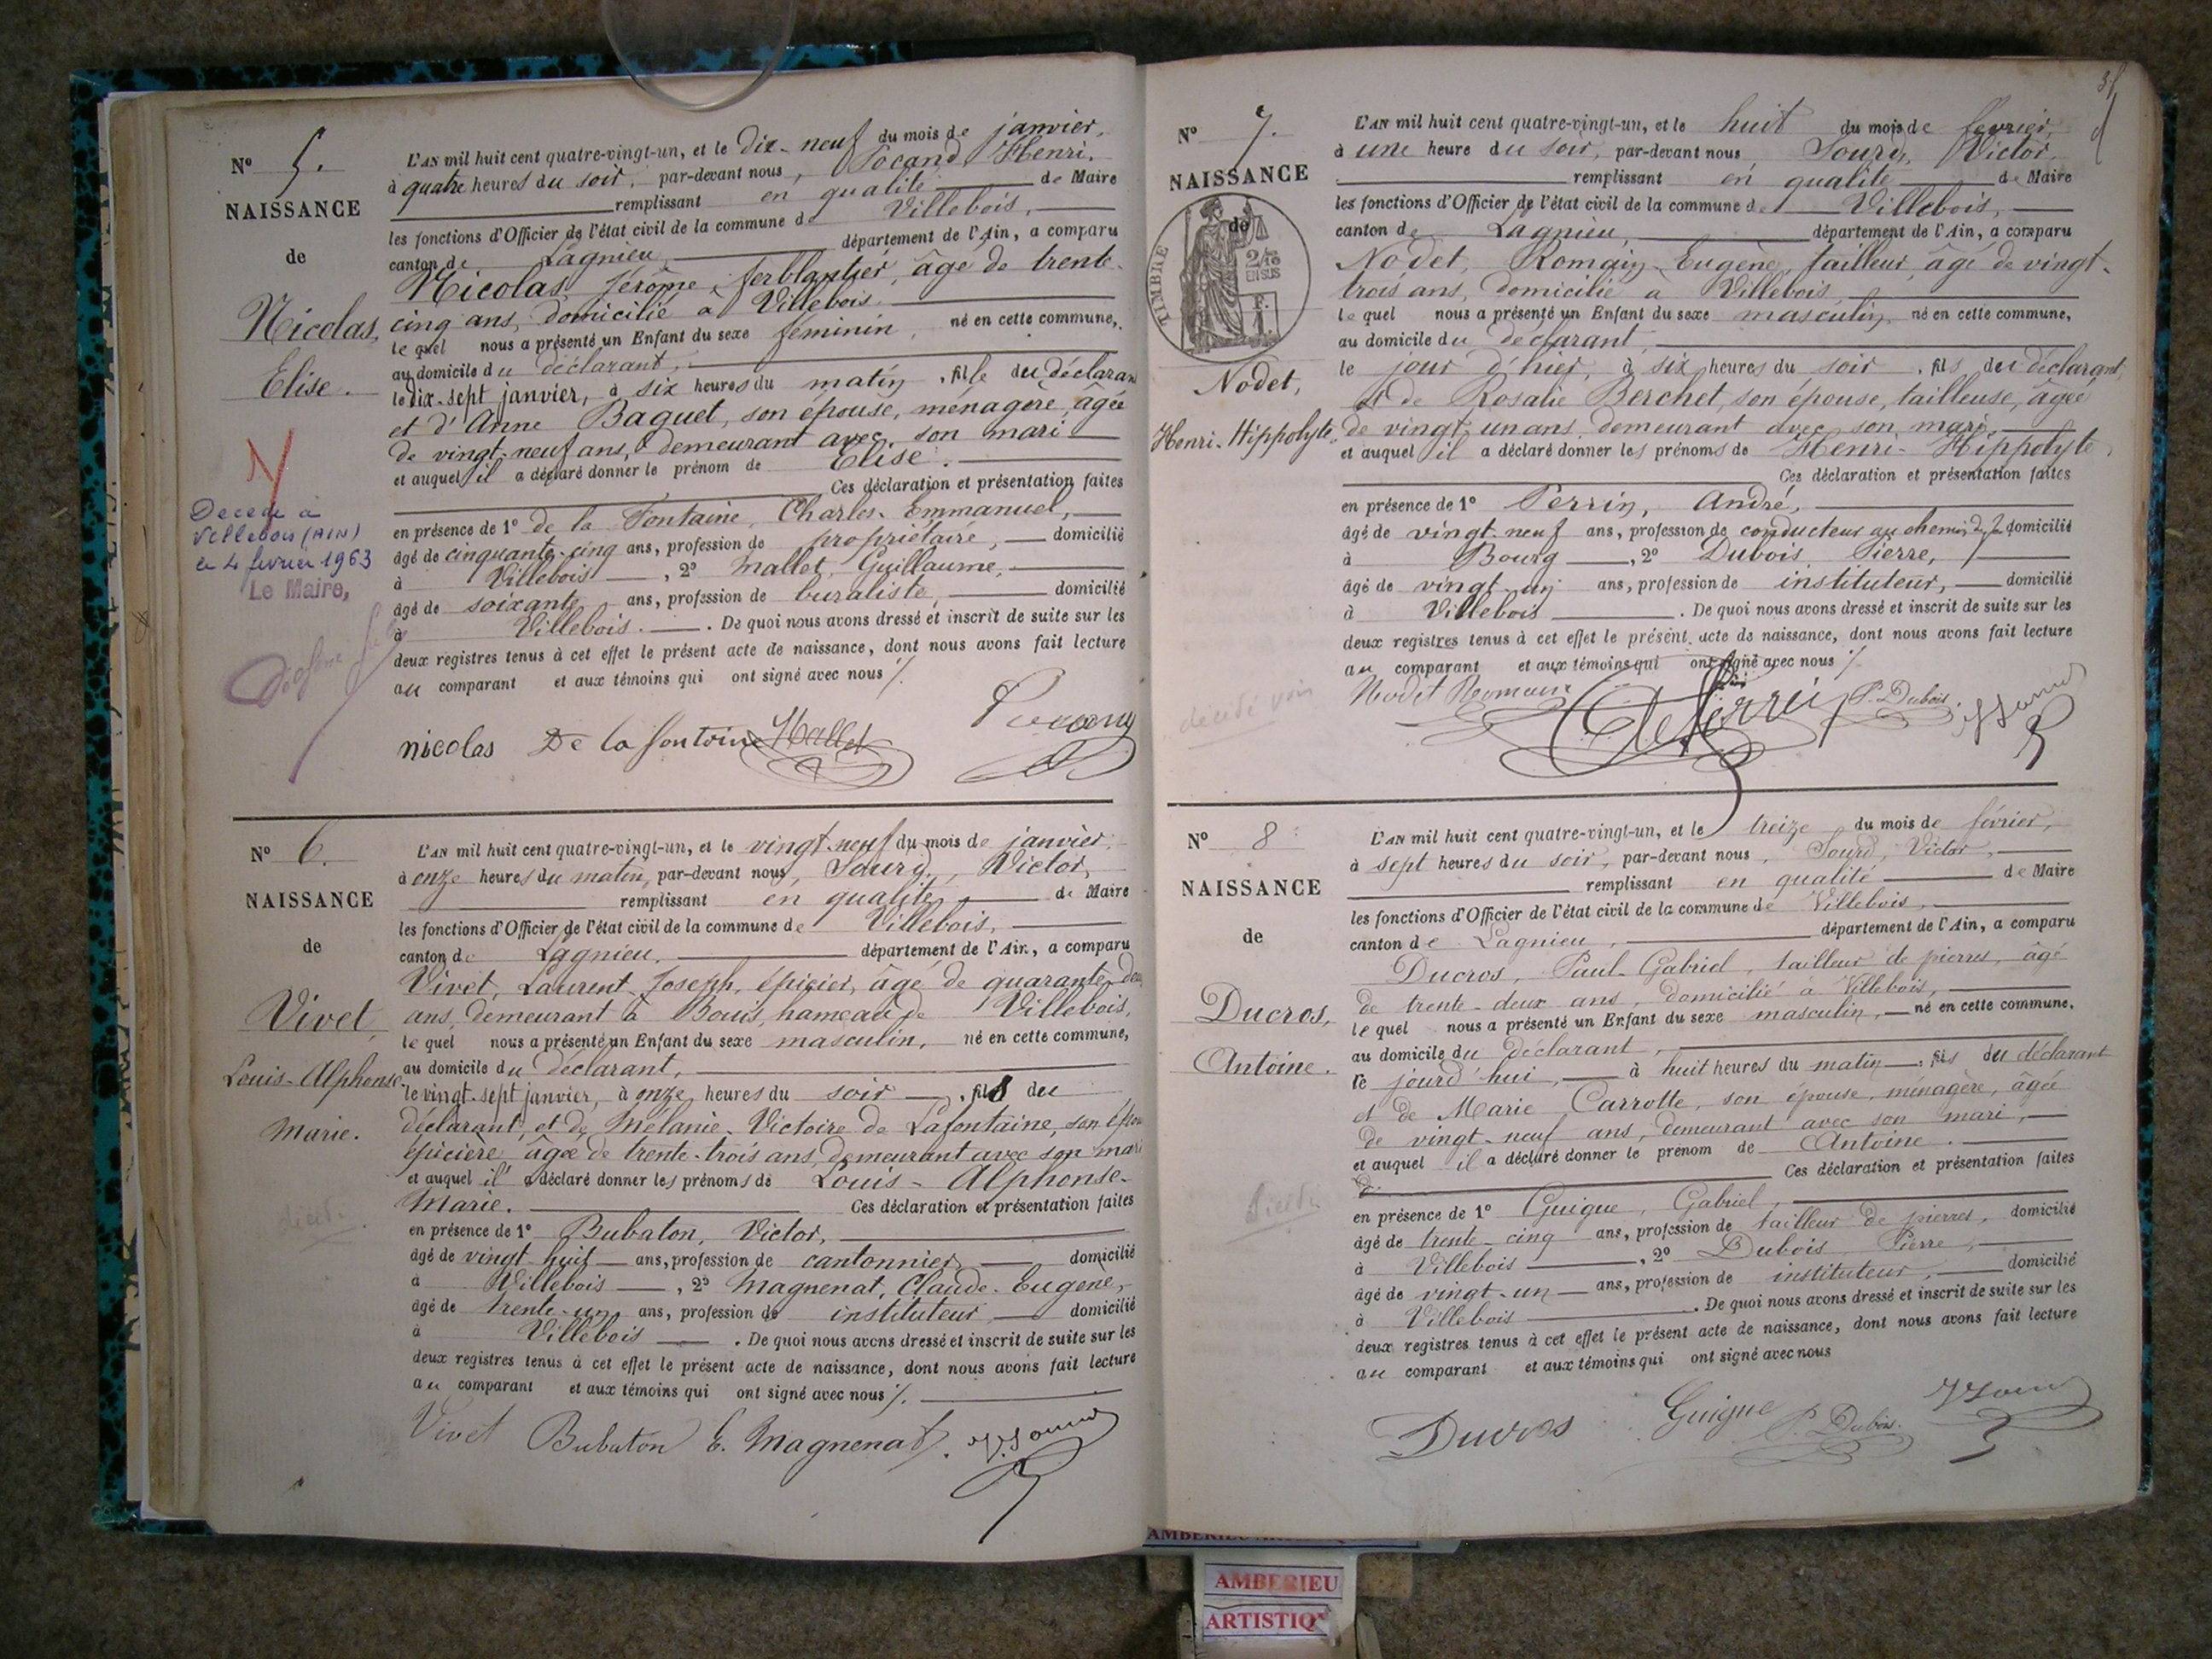 N° 5.
NAISSANCE
de
Nicolas,
Elise.
Decede a
Villebois (AIN)
le 4 fevrier 1963
Le Maire,
L'AN mil huit cent quatre-vingt-un, et le dix-neuf du mois de janvier,
à quatre heures du soir, par-devant nous, Pocand, Henri,
remplissant en qualité de Maire
les fonctions d'Officier de l'état civil de la commune de Villebois,
canton de Lagnieu, département de l'Ain, a comparu
Nicolas, Jérôme, ferblantier, âgé de trente-
cinq ans, domicilié à Villebois.
le quel nous a présenté un Enfant du sexe féminin, né en cette commune,
au domicile du déclarant,
le dix-sept janvier, à six heures du matin, fille du déclarant
et d'Anne Baguet, son épouse, ménagère, âgée
de vingt-neuf ans, demeurant avec son mari
et auquel il a déclaré donner le prénom de Elise.
Ces déclaration et présentation faites
en présence de 1° de la Fontaine, Charles-Emmanuel,
âgé de cinquante-cinq ans, profession de propriétaire, domicilié
à Villebois, 2° Mallet, Guillaume,
âgé de soixante ans, profession de buraliste, domicilié
à Villebois. De quoi nous avons dressé et inscrit de suite sur les
deux registres tenus à cet effet le présent acte de naissance, dont nous avons fait lecture
au comparant et aux témoins qui ont signé avec nous /.
nicolas De la fontaine Mallet
N° 6.
NAISSANCE
de
Vivet,
Louis-Alphonse-
Marie.
L'AN mil huit cent quatre-vingt-un, et le vingt-neuf du mois de janvier,
à onze heures du matin, par-devant nous, Sourd, Victor,
remplissant en qualité de Maire
les fonctions d'Officier de l'état civil de la commune de Villebois,
canton de Lagnieu, département de l'Ain, a comparu
Vivet, Laurent-Joseph, épicier, âgé de quarante-deux
ans, demeurant à Bouis, hameau de Villebois,
le quel nous a présenté un Enfant du sexe masculin, né en cette commune,
au domicile du déclarant,
le vingt-sept janvier, à onze heures du soir, fils du
déclarant, et de Mélanie-Victoire de Lafontaine, son épouse
épicière âgée de trente-trois ans, demeurant avec son mari
et auquel il a déclaré donner les prénoms de Louis-Alphonse-
Marie. Ces déclaration et présentation faites
en présence de 1° Bubaton, Victor,
âgé de vingt-huit ans, profession de cantonnier, domicilié
à Villebois, 2° Magnenat, Claude-Eugène,
âgé de trente-un ans, profession de instituteur domicilié
à Villebois. De quoi nous avons dressé et inscrit de suite sur les
deux registres tenus à cet effet le présent acte de naissance, dont nous avons fait lecture
au comparant et aux témoins qui ont signé avec nous /.
Vivet Bubaton E. Magnenat. V. Sourd
N° 7.
NAISSANCE
de
TIMBRE
2/10
EN SUS
Nodet,
Henri-Hippolyte.
L'AN mil huit cent quatre-vingt-un, et le huit du mois de février,
à une heure du soir, par-devant nous, Sourd, Victor,
remplissant en qualité de Maire
les fonctions d'Officier de l'état civil de la commune de Villebois,
canton de Lagnieu, département de l'Ain, a comparu
Nodet, Romain-Eugène, tailleur, âgé de vingt-
trois ans, domicilié à Villebois,
le quel nous a présenté un Enfant du sexe masculin, né en cette commune,
au domicile du déclarant,
le jour d'hier, à six heures du soir, fils du déclarant,
et de Rosalie Berchet, son épouse, tailleuse, âgée
de vingt-un ans, demeurant avec son mari,
et auquel il a déclaré donner les prénoms de Henri-Hippolyte,
Ces déclaration et présentation faites
en présence de 1° Perrin, André,
âgé de vingt-neuf ans, profession de conducteur au chemin de f. domicilié
à Bourg, 2° Dubois, Pierre,
âgé de vingt-un ans, profession de instituteur, domicilié
à Villebois. De quoi nous avons dressé et inscrit de suite sur les
deux registres tenus à cet effet le présent acte de naissance, dont nous avons fait lecture
au comparant et aux témoins qui ont signé avec nous /.
Nodet Romain Perrin P. Dubois. V. Sourd
N° 8
NAISSANCE
de
Ducros,
Antoine.
L'AN mil huit cent quatre-vingt-un, et le treize du mois de février,
à sept heures du soir, par-devant nous, Sourd, Victor,
remplissant en qualité de Maire
les fonctions d'Officier de l'état civil de la commune de Villebois,
canton de Lagnieu, département de l'Ain, a comparu
Ducros, Paul-Gabriel, tailleur de pierres, âgé
de trente-deux ans, domicilié à Villebois,
le quel nous a présenté un Enfant du sexe masculin, né en cette commune,
au domicile du déclarant,
le jourd'hui, à huit heures du matin, fils du déclarant
et de Marie Carrotte, son épouse, ménagère, âgée
de vingt-neuf ans, demeurant avec son mari,
et auquel il a déclaré donner le prénom de Antoine.
Ces déclaration et présentation faites
en présence de 1° Guigue, Gabriel,
âgé de trente-cinq ans, profession de tailleur de pierres, domicilié
à Villebois, 2° Dubois, Pierre,
âgé de vingt-un ans, profession de instituteur, domicilié
à Villebois. De quoi nous avons dressé et inscrit de suite sur les
deux registres tenus à cet effet le présent acte de naissance, dont nous avons fait lecture
au comparant et aux témoins qui ont signé avec nous
Ducros Guigue P. Dubois. V. Sourd
AMBERIEU
ARTISTIQ